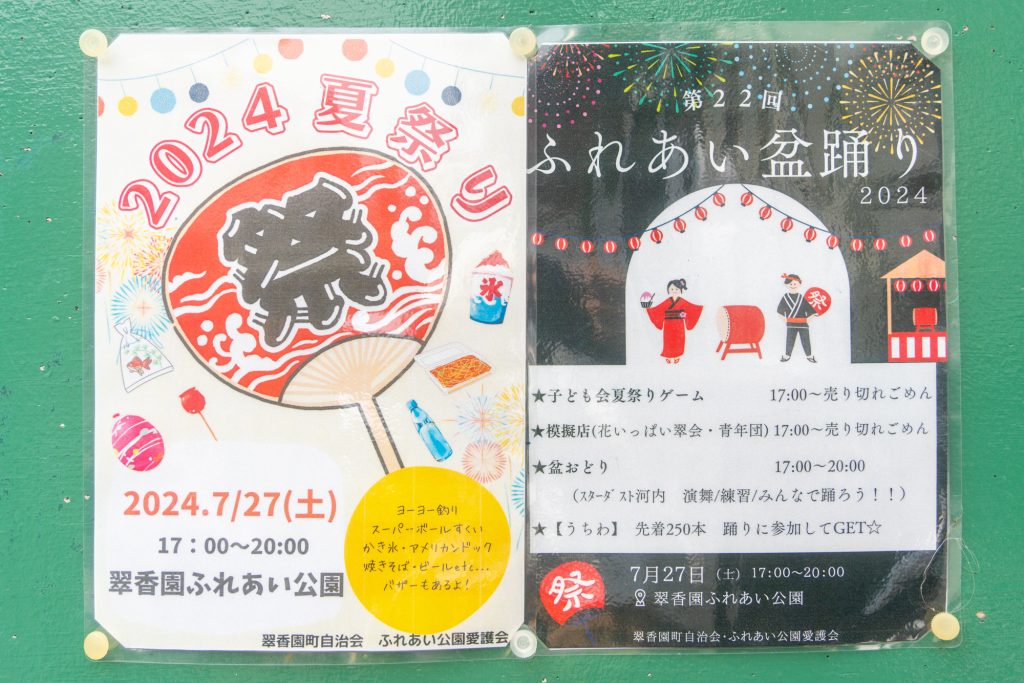 2024 夏祭り
祭
氷
2024.7/27(土)
17：00～20:00
翠香園ふれあい公園
ヨーヨー釣り
スーパーボールすくい
かき氷・アメリカンドック
焼きそば・ビールetc...
バザーもあるよ！
翠香園町自治会 ふれあい公園愛護会
第２２回
ふれあい盆踊り
2024
祭
★子ども会夏祭りゲーム 17:00～売り切れごめん
★模擬店(花いっぱい翠会・青年団) 17:00～売り切れごめん
★盆おどり 17:00～20:00
（ｽﾀｰﾀﾞｽﾄ河内 演舞/練習/みんなで踊ろう！！）
★【うちわ】 先着250本 踊りに参加してGET☆
祭
7月27日（土）17:00～20:00
翠香園ふれあい公園
翠香園町自治会・ふれあい公園愛護会